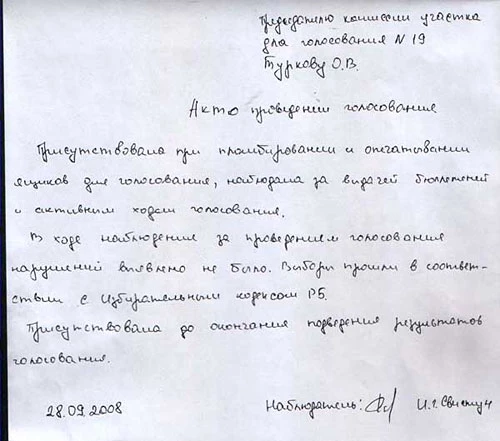 Председателю комиссии участка
для голосования N 19
Туркову О.В.
Акт о проведении голосования
Присутствовала при пломбировании и опечатывании
ящиков для голосования, наблюдала за выдачей бюллетеней
и активным ходом голосования.
В ходе наблюдения за проведением голосования
нарушений выявлено не было. Выборы прошли в соответ-
ствии с Избирательным кодексом РБ.
Присутствовала до окончания подведения результатов
голосования.
28.09.2008
Наблюдатель: И.Г. Свистун